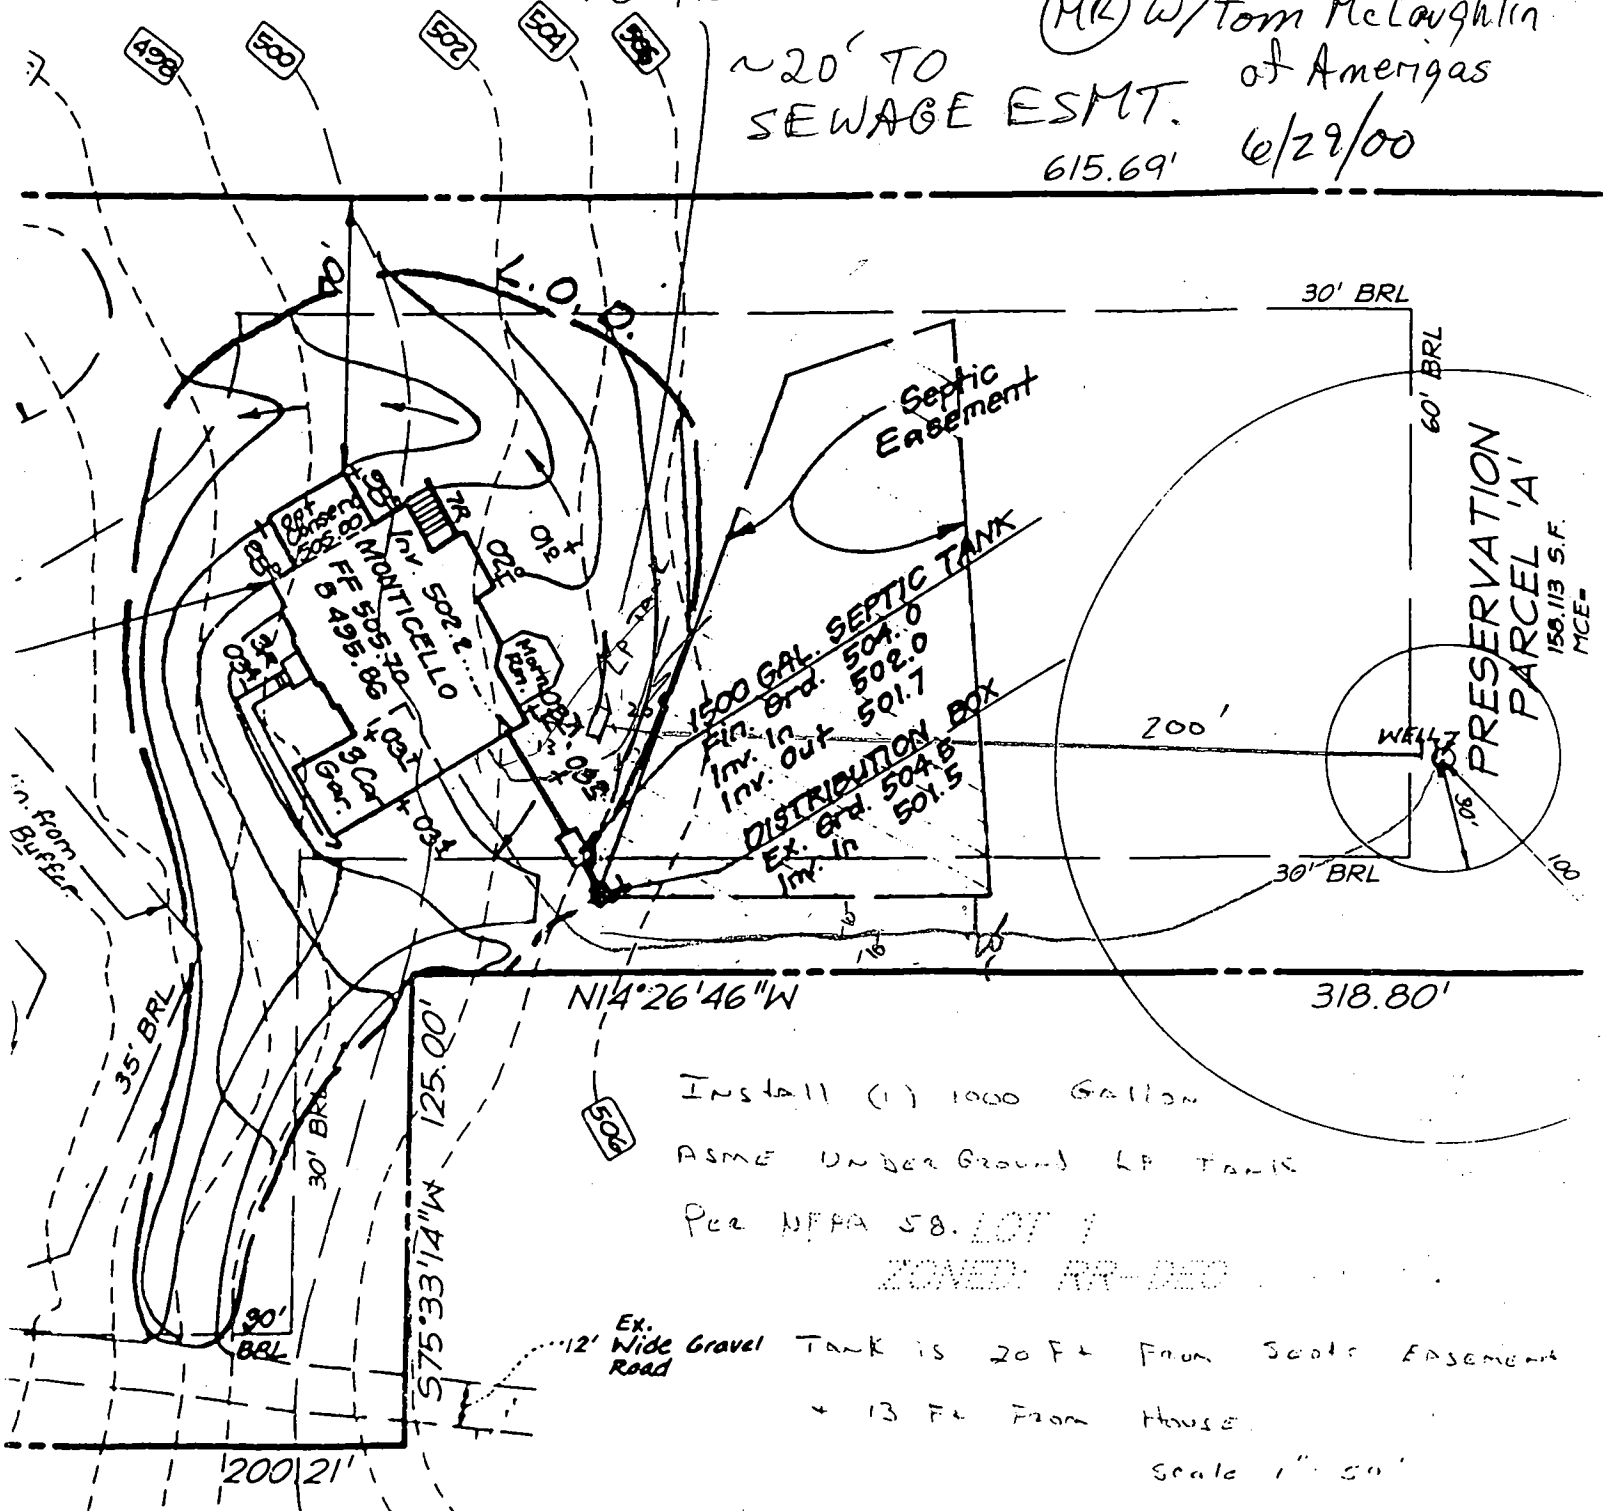 MR W/ Tom McLaughlin
of Amerigas
6/29/00
~20' TO
SEWAGE ESMT.
615.69'
498
500
502
504
506
L.O.D.
30' BRL
60' BRL
Septic
Easement
PRESERVATION
PARCEL 'A'
158,113 S.F.
MCE=
Opt
Conserv
505.00
7R
Inv. 502.2
MONTICELLO
FF 505.70
B 495.86
Morn
Rm.
3R
3 Car
Gar.
LP
20
13
1500 GAL. SEPTIC TANK
Fin. Grd. 504.0
Inv. In 502.0
Inv. Out 501.7
DISTRIBUTION BOX
Ex. Grd. 504.8
Inv. In 501.5
200'
WELL
30'
100
30' BRL
from
Buffer
35' BRL
10
20'
N14°26'46"W
318.80'
125.00'
S75°33'14"W
30' BRL
506
Install (1) 1000 Gallon
ASME UNDERGROUND LP TANK
Per NFPA 58.
LOT 1
ZONED: RR-DEO
30'
BRL
Ex.
12' Wide Gravel
Road
TANK is 20 Ft From Septic EASEMENT
+ 13 Ft From House
200.21'
Scale 1" 50'